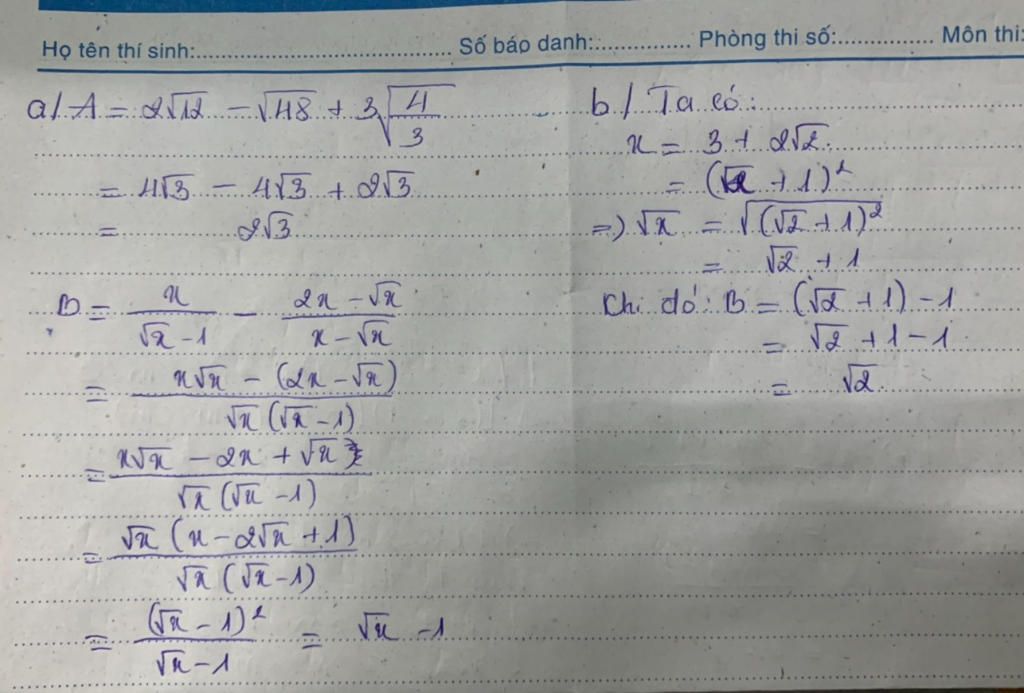 Họ tên thí sinh:................ Số báo danh:............... Phòng thi số:............... Môn thi:
a/ A = 2√12 - √48 + 3√(4/3)
= 4√3 - 4√3 + 2√3
= 2√3
B = x/(√x - 1) - (2x - √x)/(x - √x)
= (x√x - (2x - √x))/(√x (√x - 1))
= (x√x - 2x + √x)/(√x (√x - 1))
= (√x (x - 2√x + 1))/(√x (√x - 1))
= (√x - 1)²/(√x - 1) = √x - 1
b/ Ta có:
x = 3 + 2√2
= (√2 + 1)²
=> √x = √((√2 + 1)²)
= √2 + 1
Khi đó: B = (√2 + 1) - 1
= √2 + 1 - 1
= √2